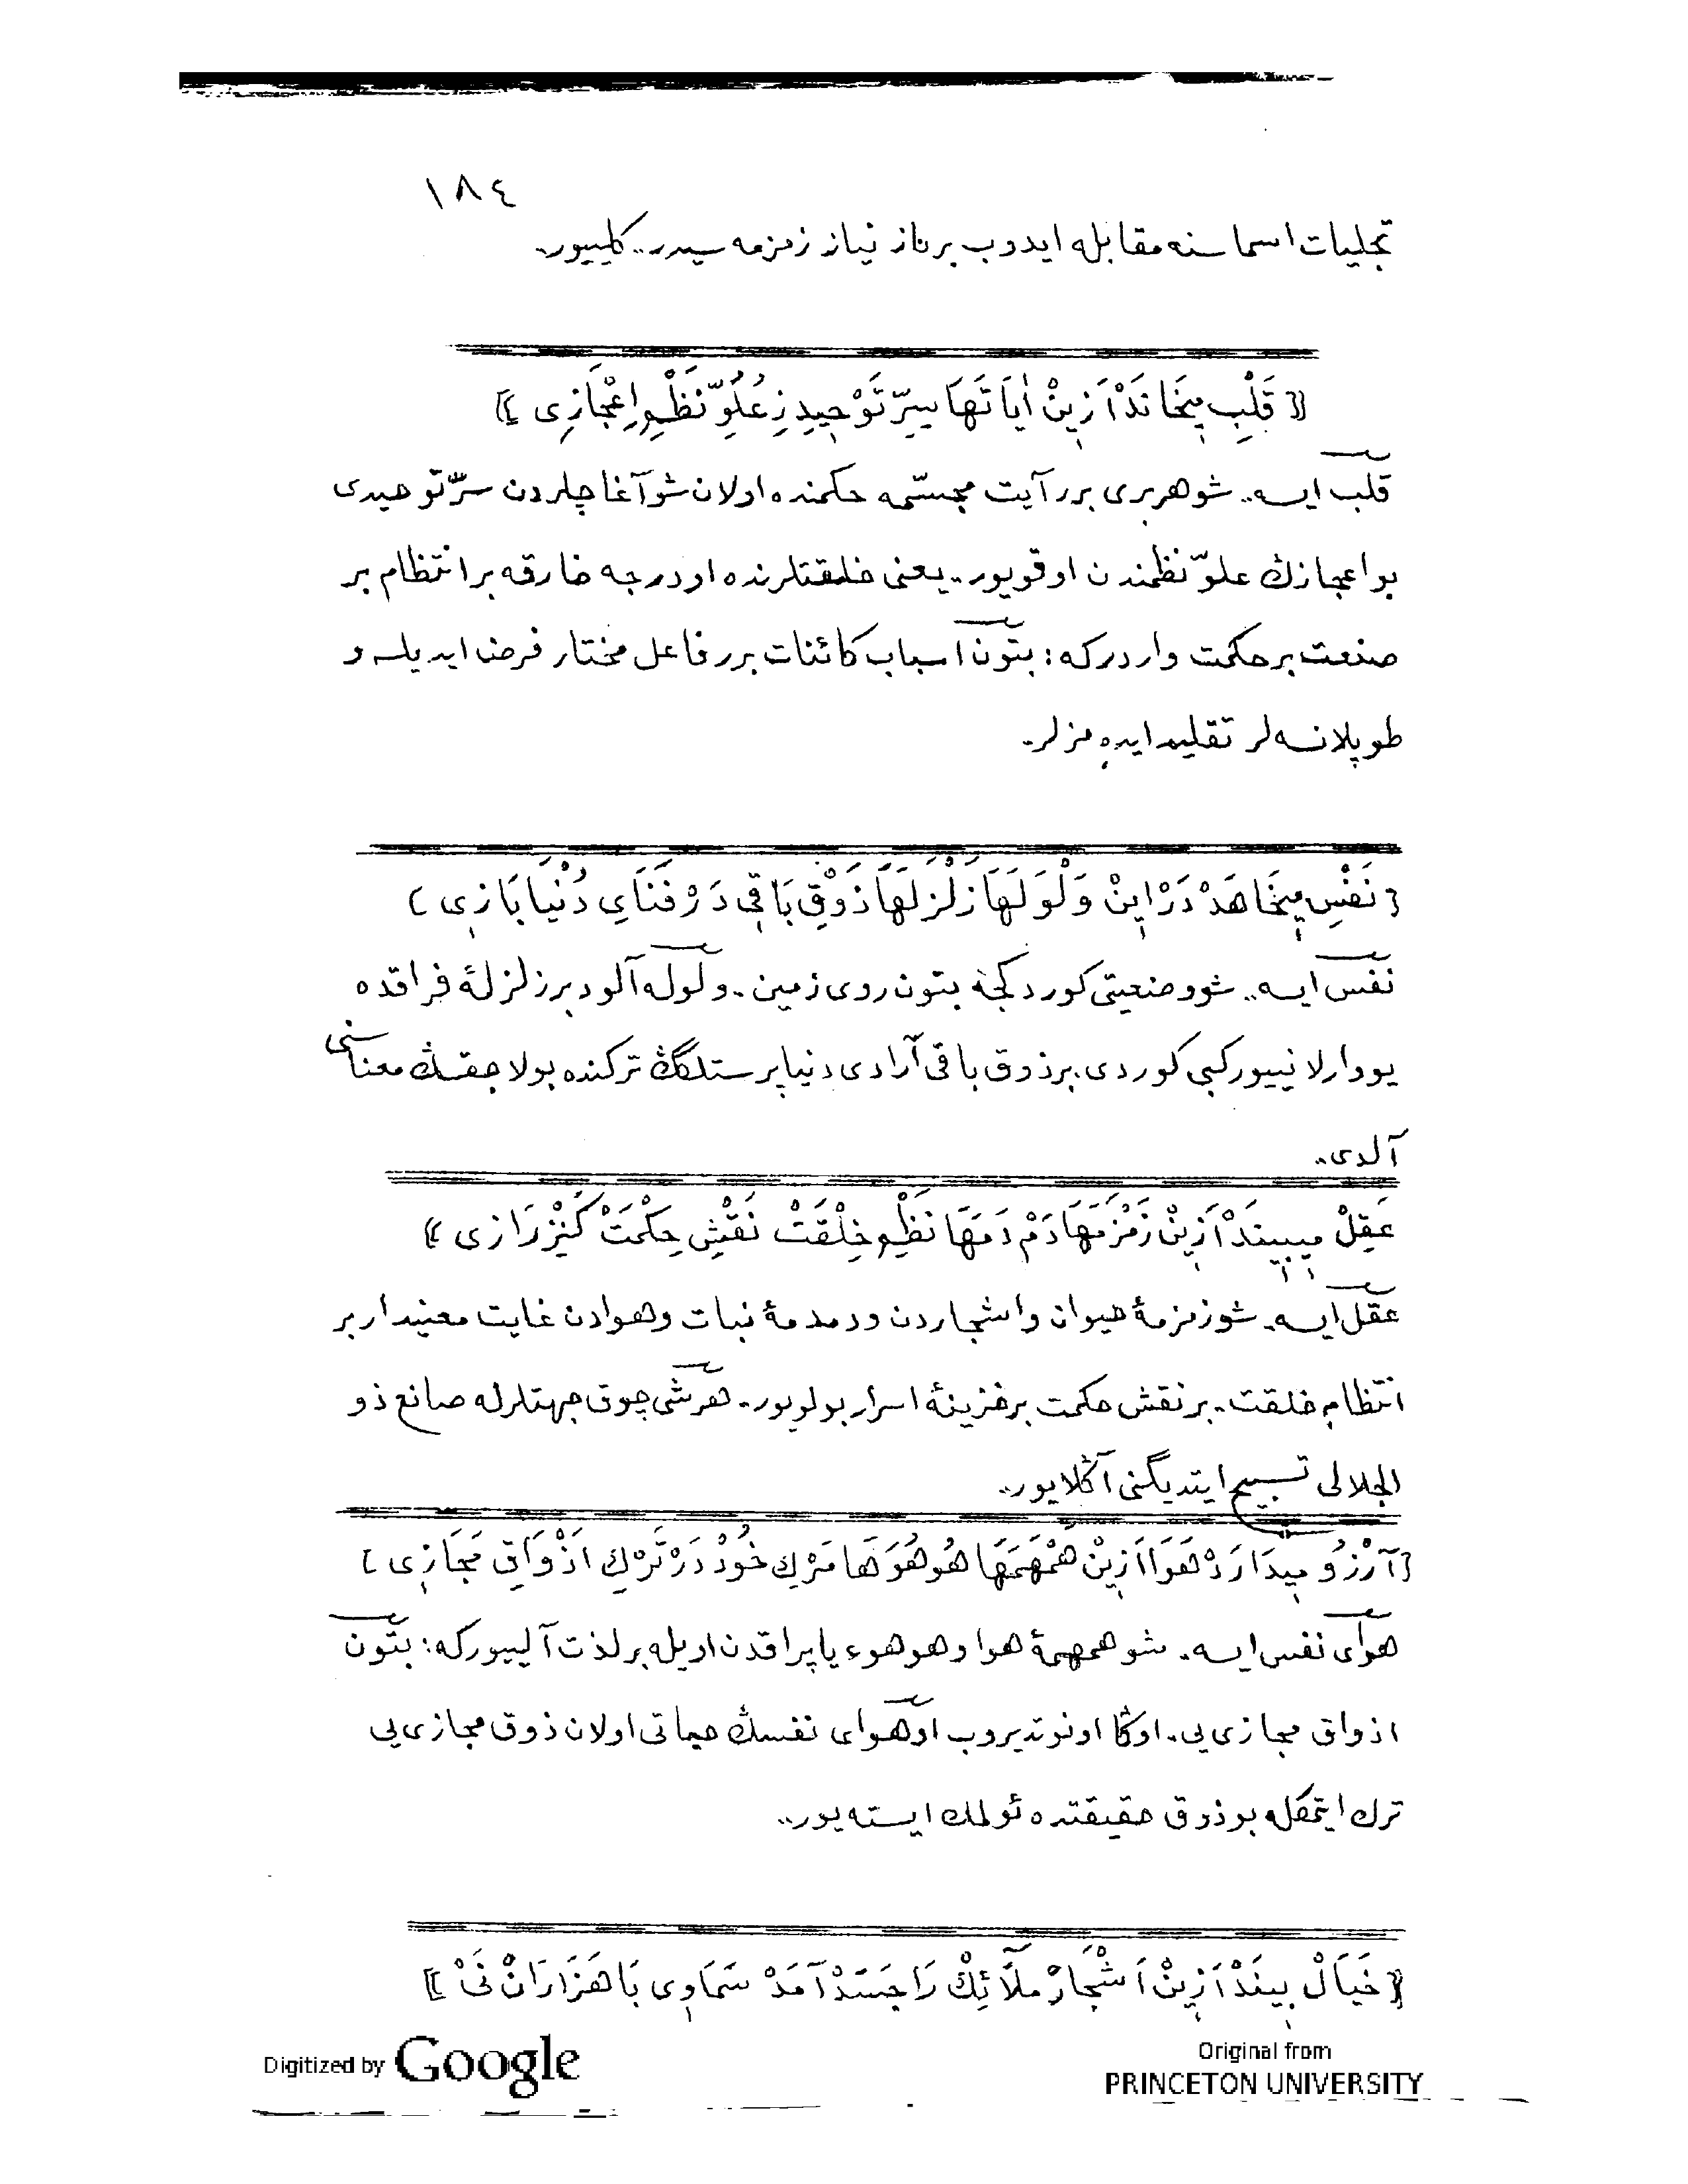 ١٨٤
تجليات اسماسنه مقابله ايدوب برناز نياز زمزمه سيدر.. كلييور.
﴿ قَلْبِ مِيخَانَدْ اَزِينْ اٰيَاتَهَا سِرِّ تَوْحِيدِ زِعُلُوِّ نَظْمِ اِعْجَازِى ﴾
قلب ايسه.. شو هربرى برر آيت مجسّمه حكمنده اولان شو آغاچلردن سرّ توحيدى
بو اعجازڭ علوّ نظمندن اوقويور.. يعنى خلقتلرنده او درجه خارقه بر انتظام بر
صنعت بر حكمت واردركه: بتون اسباب كائنات برر فاعل مختار فرض ايديلسه و
طوپلانسه لر تقليد ايده مزلر.
﴿ نَفْسِ مِيخَاهَدْ دَرْ اِينْ وَلْوَلَهَا زَلْزَلَهَا ذَوْقِ بَاقِى دَرْ فَنَاىِ دُنْيَا بَازِى ﴾
نفس ايسه.. شو وضعيتى كوردكجه بتون روى زمين. ولوله آلود بر زلزلۀ فراقده
يووارلانييور كبى كوردى. برذوق باقى آرادى دنيا پرستلگڭ تركنده بولاجقسڭ معناسنى
آلدى..
عَقِلْ مِيبِينَدْ اَزِينْ زَمْزَمَهَا دَمْ دَمَهَا نَظْمِ خِلْقَتْ نَقْشِ حِكْمَتْ كَنْزِ رَازِى ﴾
عقل ايسه. شو زمزمۀ حيوان و اشجاردن و دمدمۀ نبات و هوادن غايت معنيدار بر
انتظام خلقت. بر نقش حكمت بر خزينۀ اسرار بولويور. هرشى چوق جهتلرله صانع ذو
الجلالى تسبيح ايتديگنى آڭلايور..
﴿ آرْزُو مِيدَارَدْ هَوَا اَزِينْ هَمْهَمَهَا هُوهُوَهَا مَرْكِ خُودْ دَرْ تَرْكِ اَذْوَاقِ مَجَازِى ﴾
هواى نفس ايسه. شو همهمۀ هوا و هوهوء ياپراقدن اويله بر لذت آلييوركه: بتون
اذواق مجازى يى. اوڭا اونوتديروب او هواى نفسڭ حياتى اولان ذوق مجازى يى
ترك ايتمكله بو ذوق حقيقتده ئولمك ايسته يور..
﴿ خَيَالْ بِينَدْ اَزِينْ اَشْجَارْ مَلَائِكْ رَا جَسَدْ آمَدْ سَمَاوِى بَا هَزَارَانْ نَىْ ﴾
Digitized by Google
Original from
PRINCETON UNIVERSITY